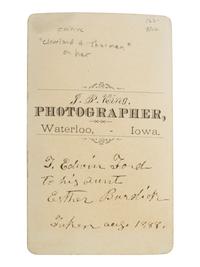 "Cleveland & Thurman"
on hat
J. P. King,
PHOTOGRAPHER,
Waterloo, - Iowa.
T. Edwin Ford
to his aunt
Esther Burdick
Taken aug. 1888.